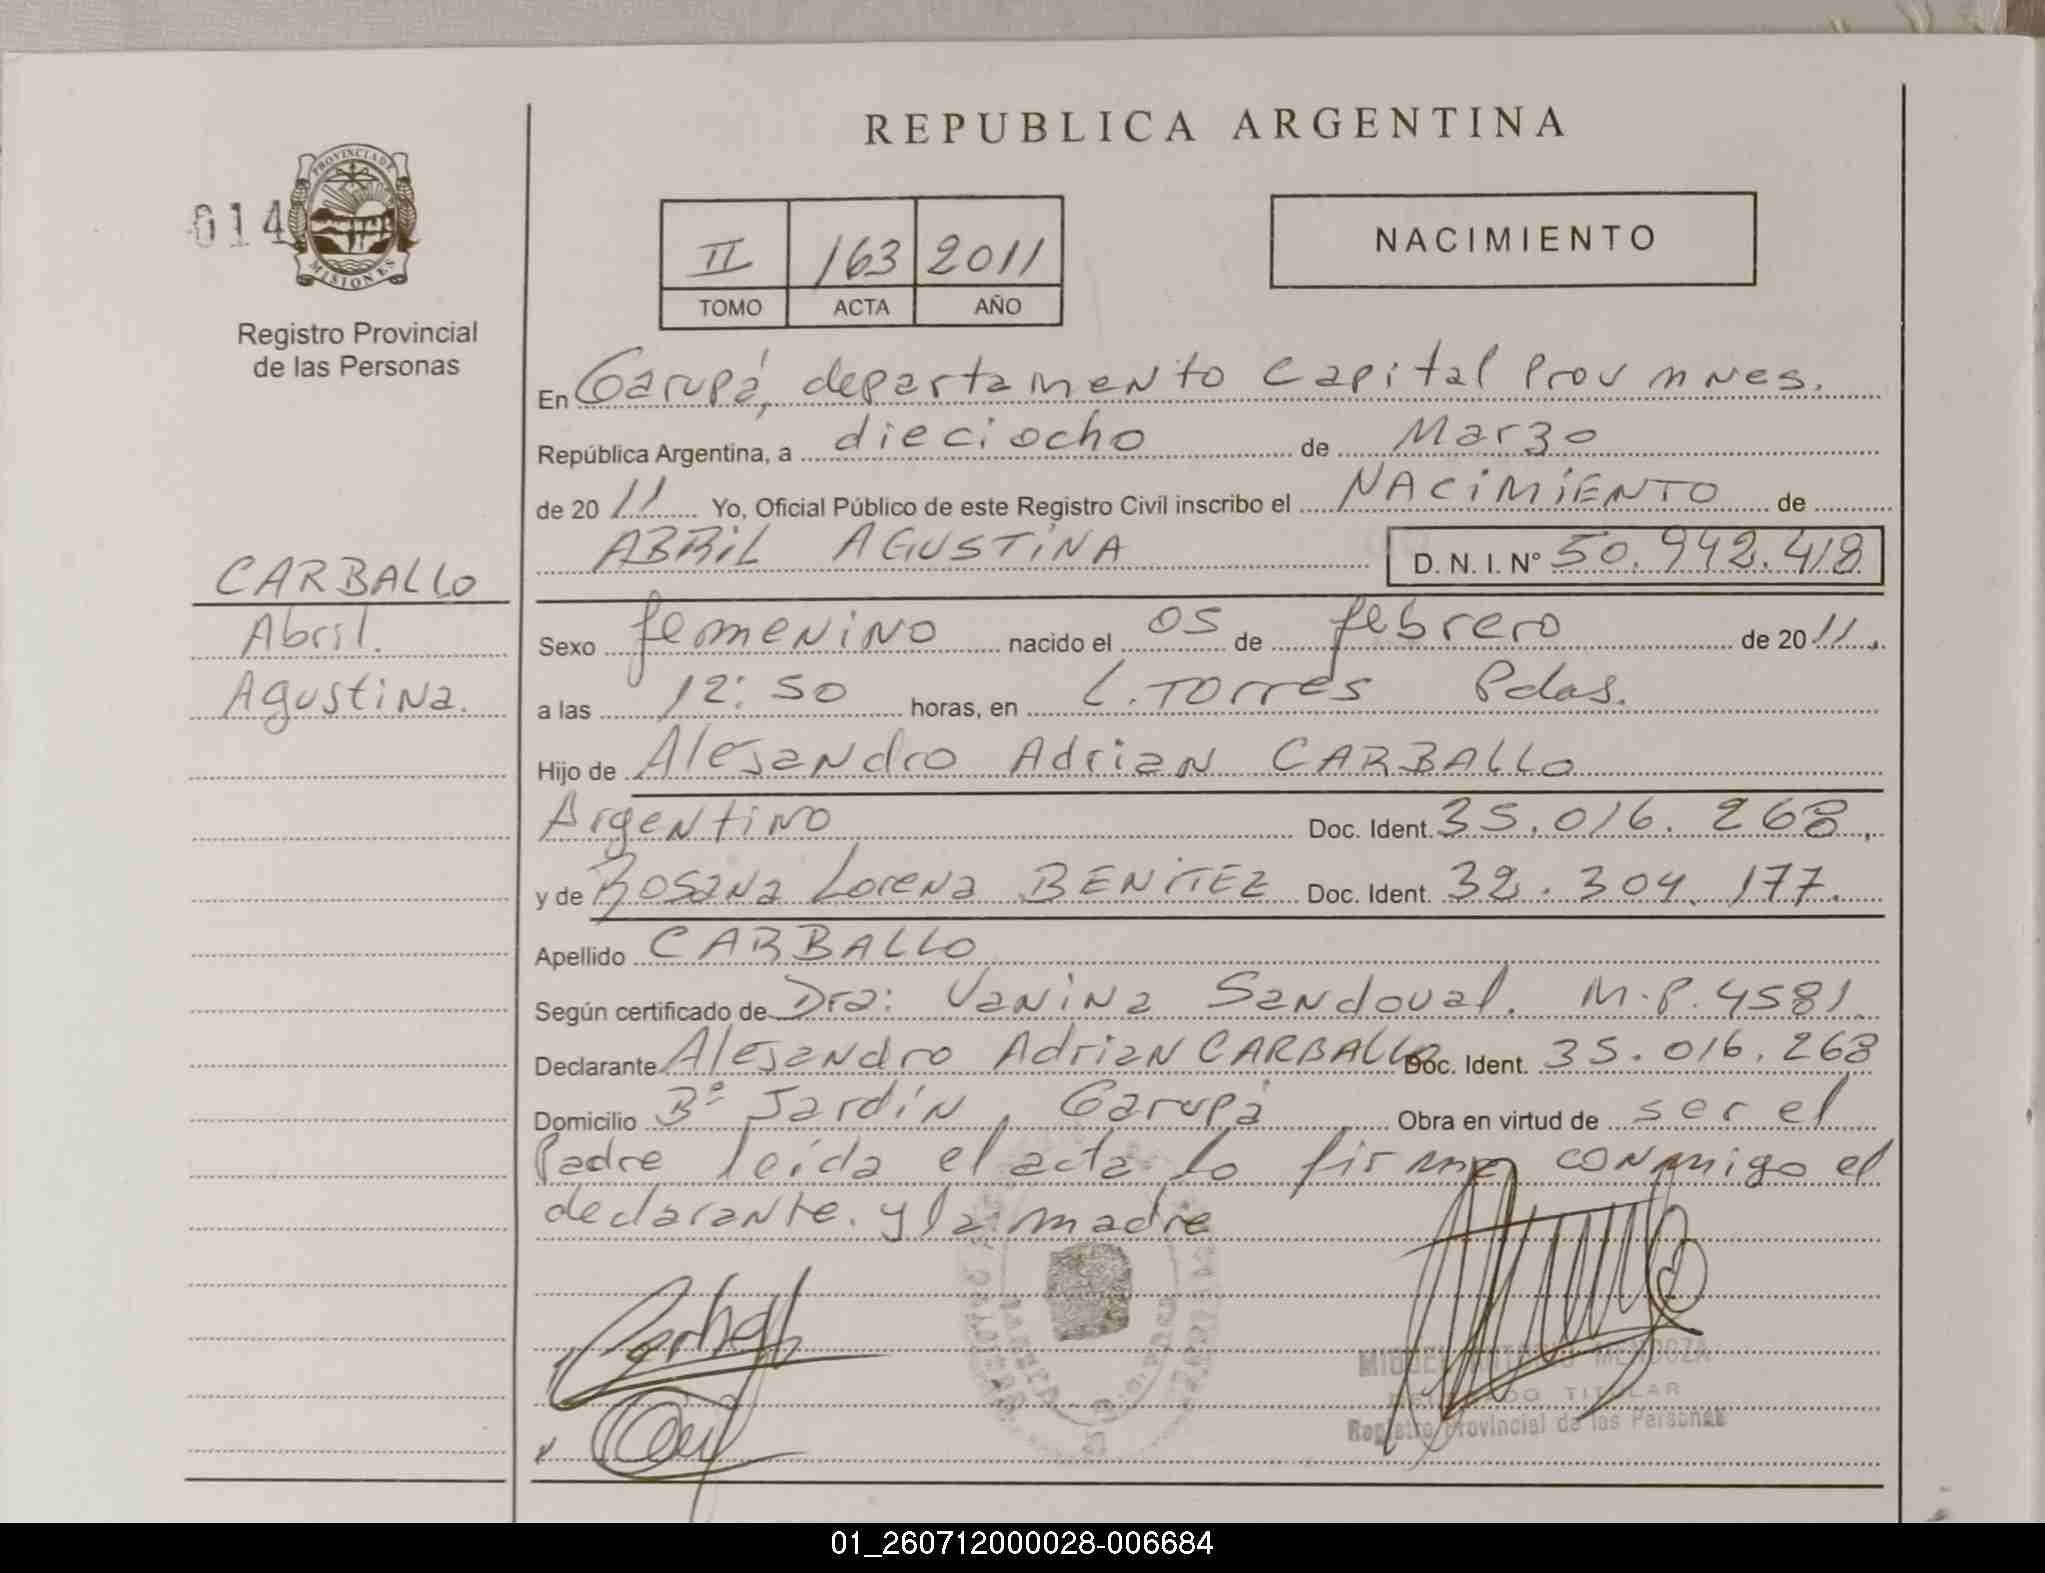 REPUBLICA ARGENTINA
014
PROVINCIA DE
MISIONES
Registro Provincial
de las Personas
II 163 2011
TOMO ACTA AÑO
NACIMIENTO
En Garupá, departamento Capital Prov mnes.
República Argentina, a dieciocho de Marzo
de 2011 Yo, Oficial Público de este Registro Civil inscribo el NACIMIENTO de
ABRIL AGUSTINA D. N. I. N° 50.942.418
CARBALLO
Abril.
Agustina.
Sexo femenino nacido el 05 de febrero de 2011.
a las 12:50 horas, en L. Torres Pdas.
Hijo de Alejandro Adrian CARBALLO
Argentino Doc. Ident. 35.016.268,
y de Rosana Lorena BENITEZ Doc. Ident. 32.304.177.
Apellido CARBALLO
Según certificado de Dra: Vanina Sandoval. M.P. 4581
Declarante Alejandro Adrian CARBALLO Doc. Ident. 35.016.268
Domicilio B° Jardín, Garupá Obra en virtud de ser el
Padre leída el acta lo firma conmigo el
declarante. y la madre
MIGUEL ANTONIO MENDOZA
DELEGADO TITULAR
Registro Provincial de las Personas
01_260712000028-006684